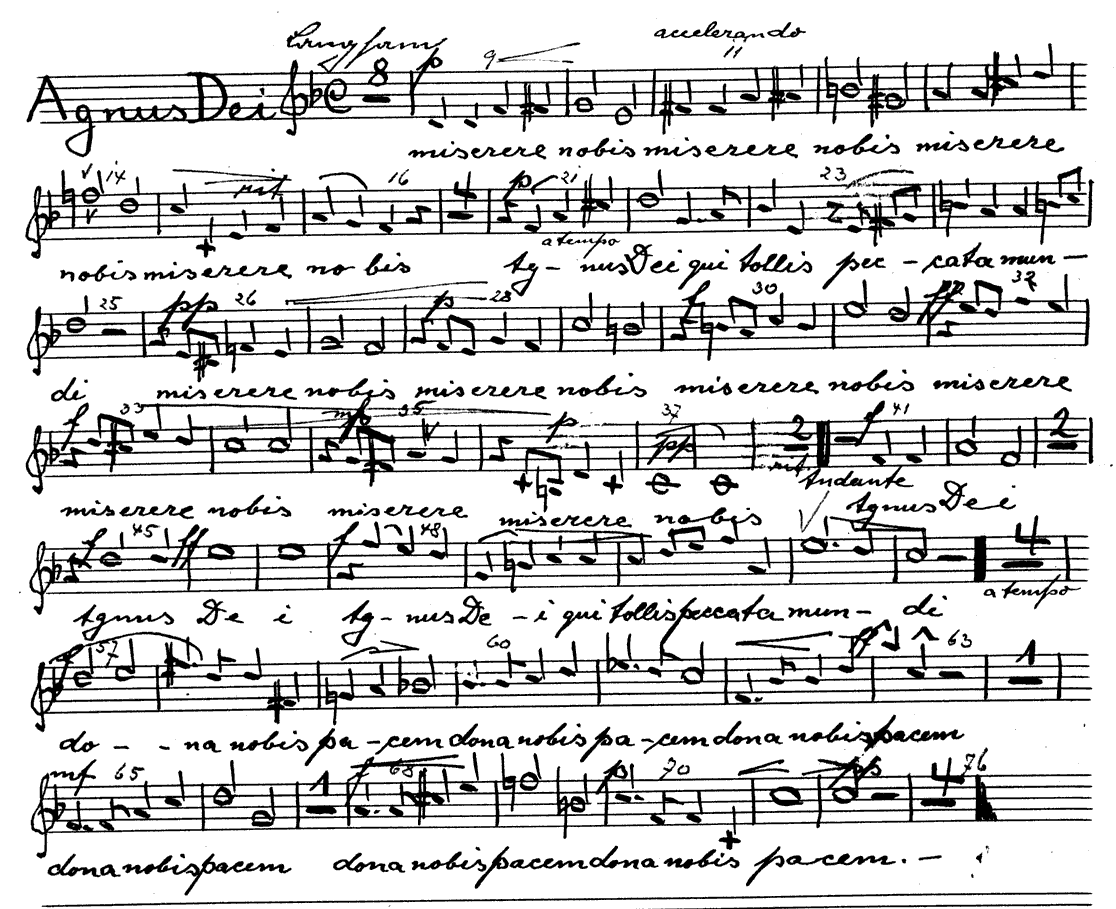 Langsam accelerando
8 p 9 11
Agnus Dei
miserere nobis miserere nobis miserere
14 rit 16 4 p 21 23
a tempo
nobis miserere no bis Ag - nus Dei qui tollis pec - cata mun -
25 pp 26 p 28 f 30 ff 32
di miserere nobis miserere nobis miserere nobis miserere
f 33 mf 35 p 37 pp 2 f 41 2
rit Andante
miserere nobis miserere miserere nobis Agnus Dei
f 45 ff f 48 4
a tempo
Agnus De i Ag - nus De - i qui tollis peccata mun - di
57 60 ff 63 1
do - - na nobis pa - cem dona nobis pa - cem dona nobis pacem
mf 65 1 f 68 p 70 pp 4 76
dona nobis pacem dona nobis pacem dona nobis pacem. -